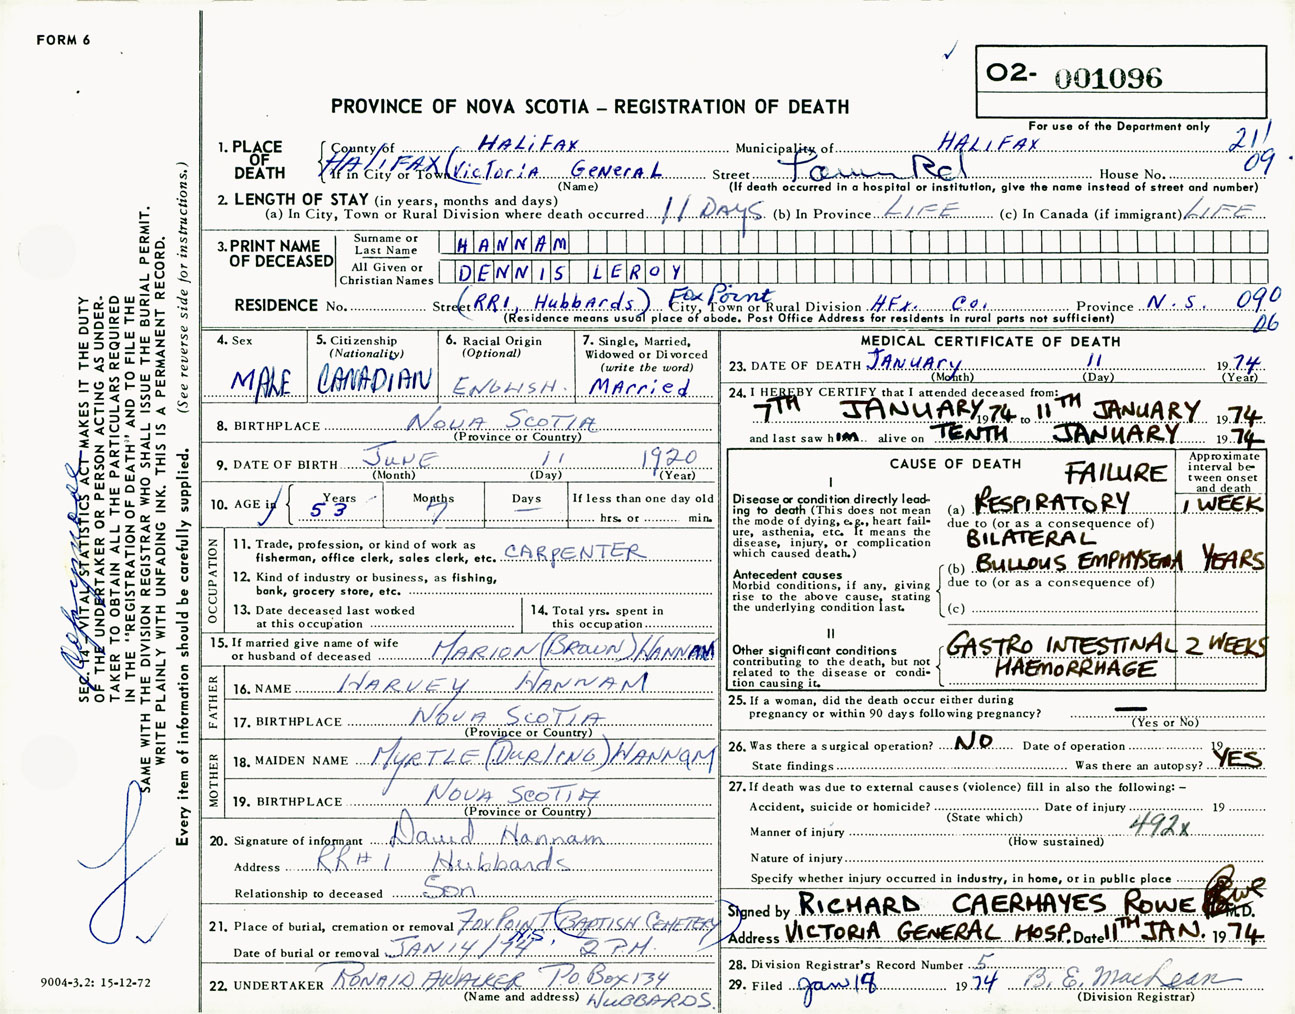 FORM 6
O2- 001096
PROVINCE OF NOVA SCOTIA – REGISTRATION OF DEATH
For use of the Department only
1. PLACE OF DEATH County of HALIFAX Municipality of HALIFAX 211
HALIFAX If in City or Town (Victoria General Street House No. 09
(Name) (If death occurred in a hospital or institution, give the name instead of street and number)
2. LENGTH OF STAY (in years, months and days)
(a) In City, Town or Rural Division where death occurred 11 DAYS (b) In Province LIFE (c) In Canada (if immigrant) LIFE
3. PRINT NAME OF DECEASED
Surname or Last Name HANNAM
All Given or Christian Names DENNIS LEROY
RESIDENCE No. Street (RR1, Hubbards) Fox Point City, Town or Rural Division HFX. Co. Province N.S. 090
(Residence means usual place of abode. Post Office Address for residents in rural parts not sufficient) 06
4. Sex MALE
5. Citizenship (Nationality) CANADIAN
6. Racial Origin (Optional) ENGLISH.
7. Single, Married, Widowed or Divorced (write the word) Married
8. BIRTHPLACE NOVA SCOTIA
(Province or Country)
9. DATE OF BIRTH June 11 1920
(Month) (Day) (Year)
10. AGE in Years 53 Months 7 Days — If less than one day old
hrs. or min.
OCCUPATION
11. Trade, profession, or kind of work as fisherman, office clerk, sales clerk, etc. CARPENTER
12. Kind of industry or business, as fishing, bank, grocery store, etc.
13. Date deceased last worked at this occupation
14. Total yrs. spent in this occupation
15. If married give name of wife or husband of deceased MARION (BROWN) HANNAM
FATHER
16. NAME HARVEY HANNAM
17. BIRTHPLACE NOVA SCOTIA
(Province or Country)
MOTHER
18. MAIDEN NAME MYRTLE (DURLING) HANNAM
19. BIRTHPLACE NOVA SCOTIA
(Province or Country)
20. Signature of informant David Hannam
Address RR#1 Hubbards
Relationship to deceased Son
21. Place of burial, cremation or removal FOX POINT (BAPTISH CEMETERY)
N.S.
Date of burial or removal JAN 14/74 2 P.M.
22. UNDERTAKER RONALD A WALKER P.O BOX 134
(Name and address) HUBBARDS
MEDICAL CERTIFICATE OF DEATH
23. DATE OF DEATH JANUARY 11 1974
(Month) (Day) (Year)
24. I HEREBY CERTIFY that I attended deceased from:
7TH JANUARY 1974 to 11TH JANUARY 1974
and last saw him alive on TENTH JANUARY 1974
CAUSE OF DEATH
Approximate interval between onset and death
I
Disease or condition directly leading to death (This does not mean the mode of dying, e.g., heart failure, asthenia, etc. It means the disease, injury, or complication which caused death.)
FAILURE
(a) RESPIRATORY 1 WEEK
due to (or as a consequence of)
BILATERAL
Antecedent causes
Morbid conditions, if any, giving rise to the above cause, stating the underlying condition last.
(b) BULLOUS EMPHYSEMA YEARS
due to (or as a consequence of)
(c)
II
Other significant conditions contributing to the death, but not related to the disease or condition causing it.
GASTRO INTESTINAL 2 WEEKS
HAEMORRHAGE
25. If a woman, did the death occur either during pregnancy or within 90 days following pregnancy? —
(Yes or No)
26. Was there a surgical operation? NO Date of operation 19
State findings Was there an autopsy? YES
27. If death was due to external causes (violence) fill in also the following: –
Accident, suicide or homicide? Date of injury 19
(State which)
Manner of injury 492x
(How sustained)
Nature of injury
Specify whether injury occurred in industry, in home, or in public place
Signed by RICHARD CAERHAYES ROWE M.D.
Address VICTORIA GENERAL HOSP. Date 11TH JAN. 1974
28. Division Registrar's Record Number 5
29. Filed Jan 18 1974 B. E. MacLean
(Division Registrar)
SEC. 14 – VITAL STATISTICS ACT – MAKES IT THE DUTY
OF THE UNDERTAKER OR PERSON ACTING AS UNDER-
TAKER TO OBTAIN ALL THE PARTICULARS REQUIRED
IN THE "REGISTRATION OF DEATH" AND TO FILE THE
SAME WITH THE DIVISION REGISTRAR WHO SHALL ISSUE THE BURIAL PERMIT.
WRITE PLAINLY WITH UNFADING INK. THIS IS A PERMANENT RECORD.
Every item of information should be carefully supplied. (See reverse side for instructions.)
9004-3.2: 15-12-72